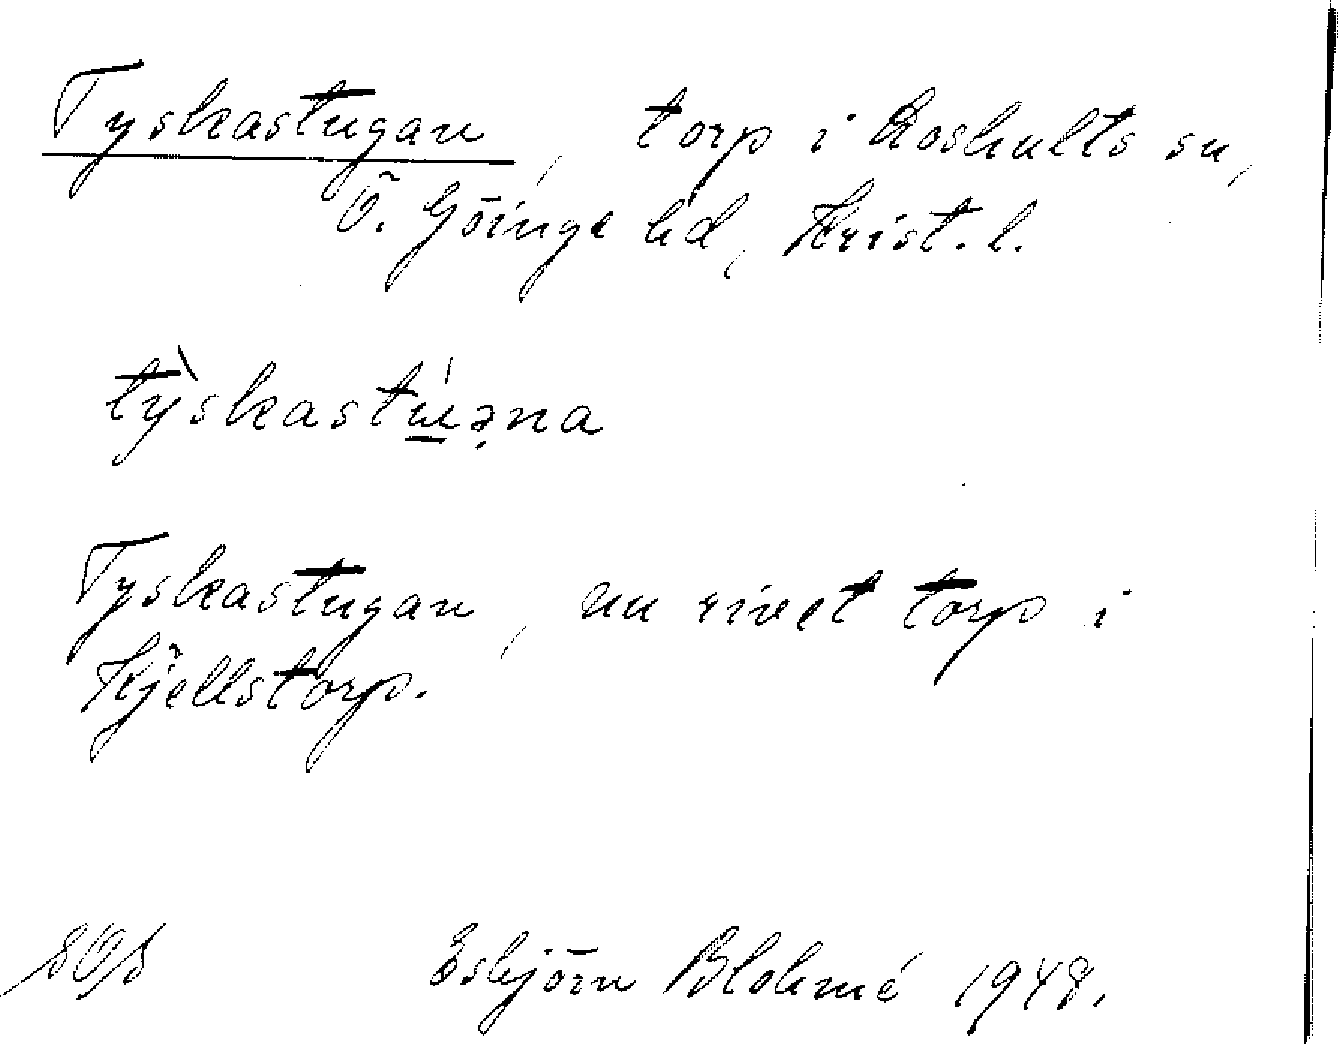 Tyskastugan, torp i Loshults sn,
Ö. Göinge hd, Krist. l.
Tyskastugan, nu rivet torp i
Kjellstorp.
Esbjörn Blohmé 1948.